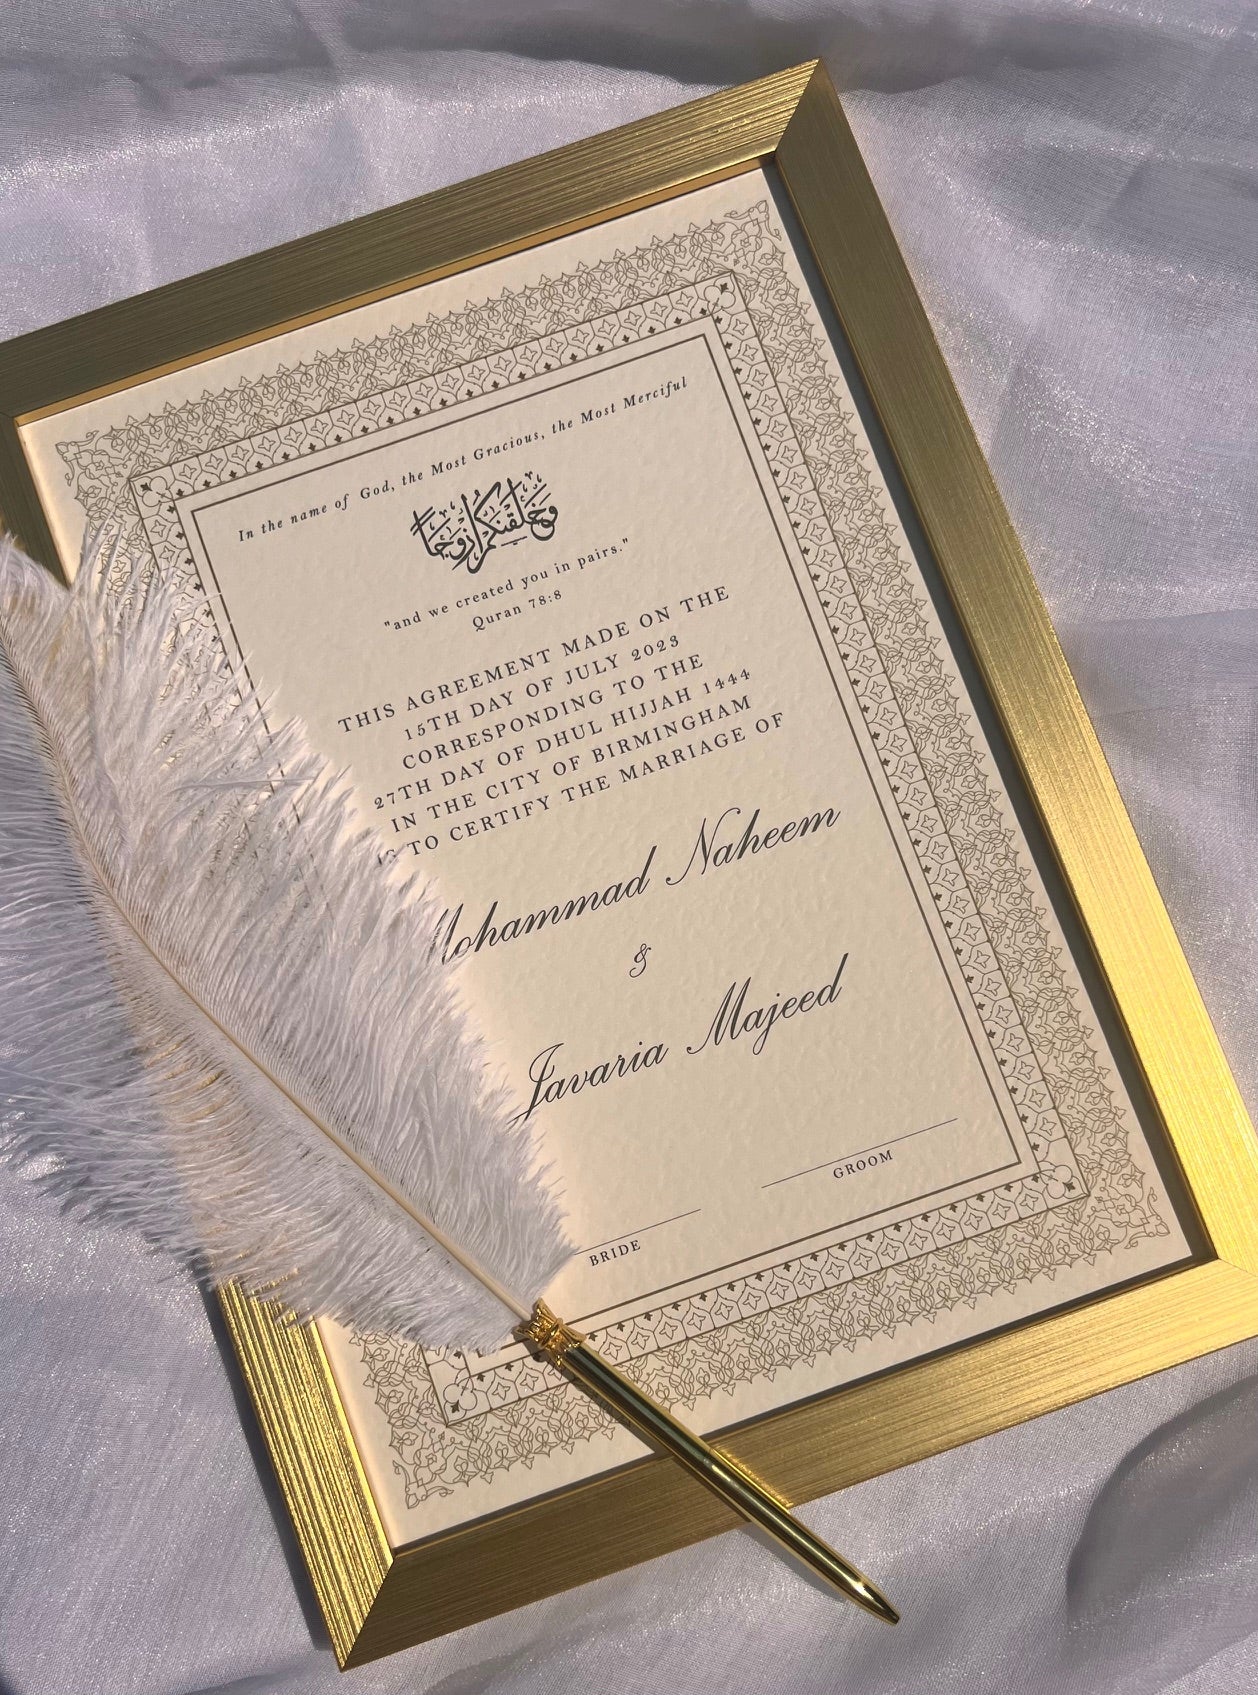 In the name of God, the Most Gracious, the Most Merciful
وخلقنكم أزوجا
"and we created you in pairs."
Quran 78:8
THIS AGREEMENT MADE ON THE
15TH DAY OF JULY 2023
CORRESPONDING TO THE
27TH DAY OF DHUL HIJJAH 1444
IN THE CITY OF BIRMINGHAM
IS TO CERTIFY THE MARRIAGE OF
Mohammad Naheem
&
Javaria Majeed
BRIDE
GROOM